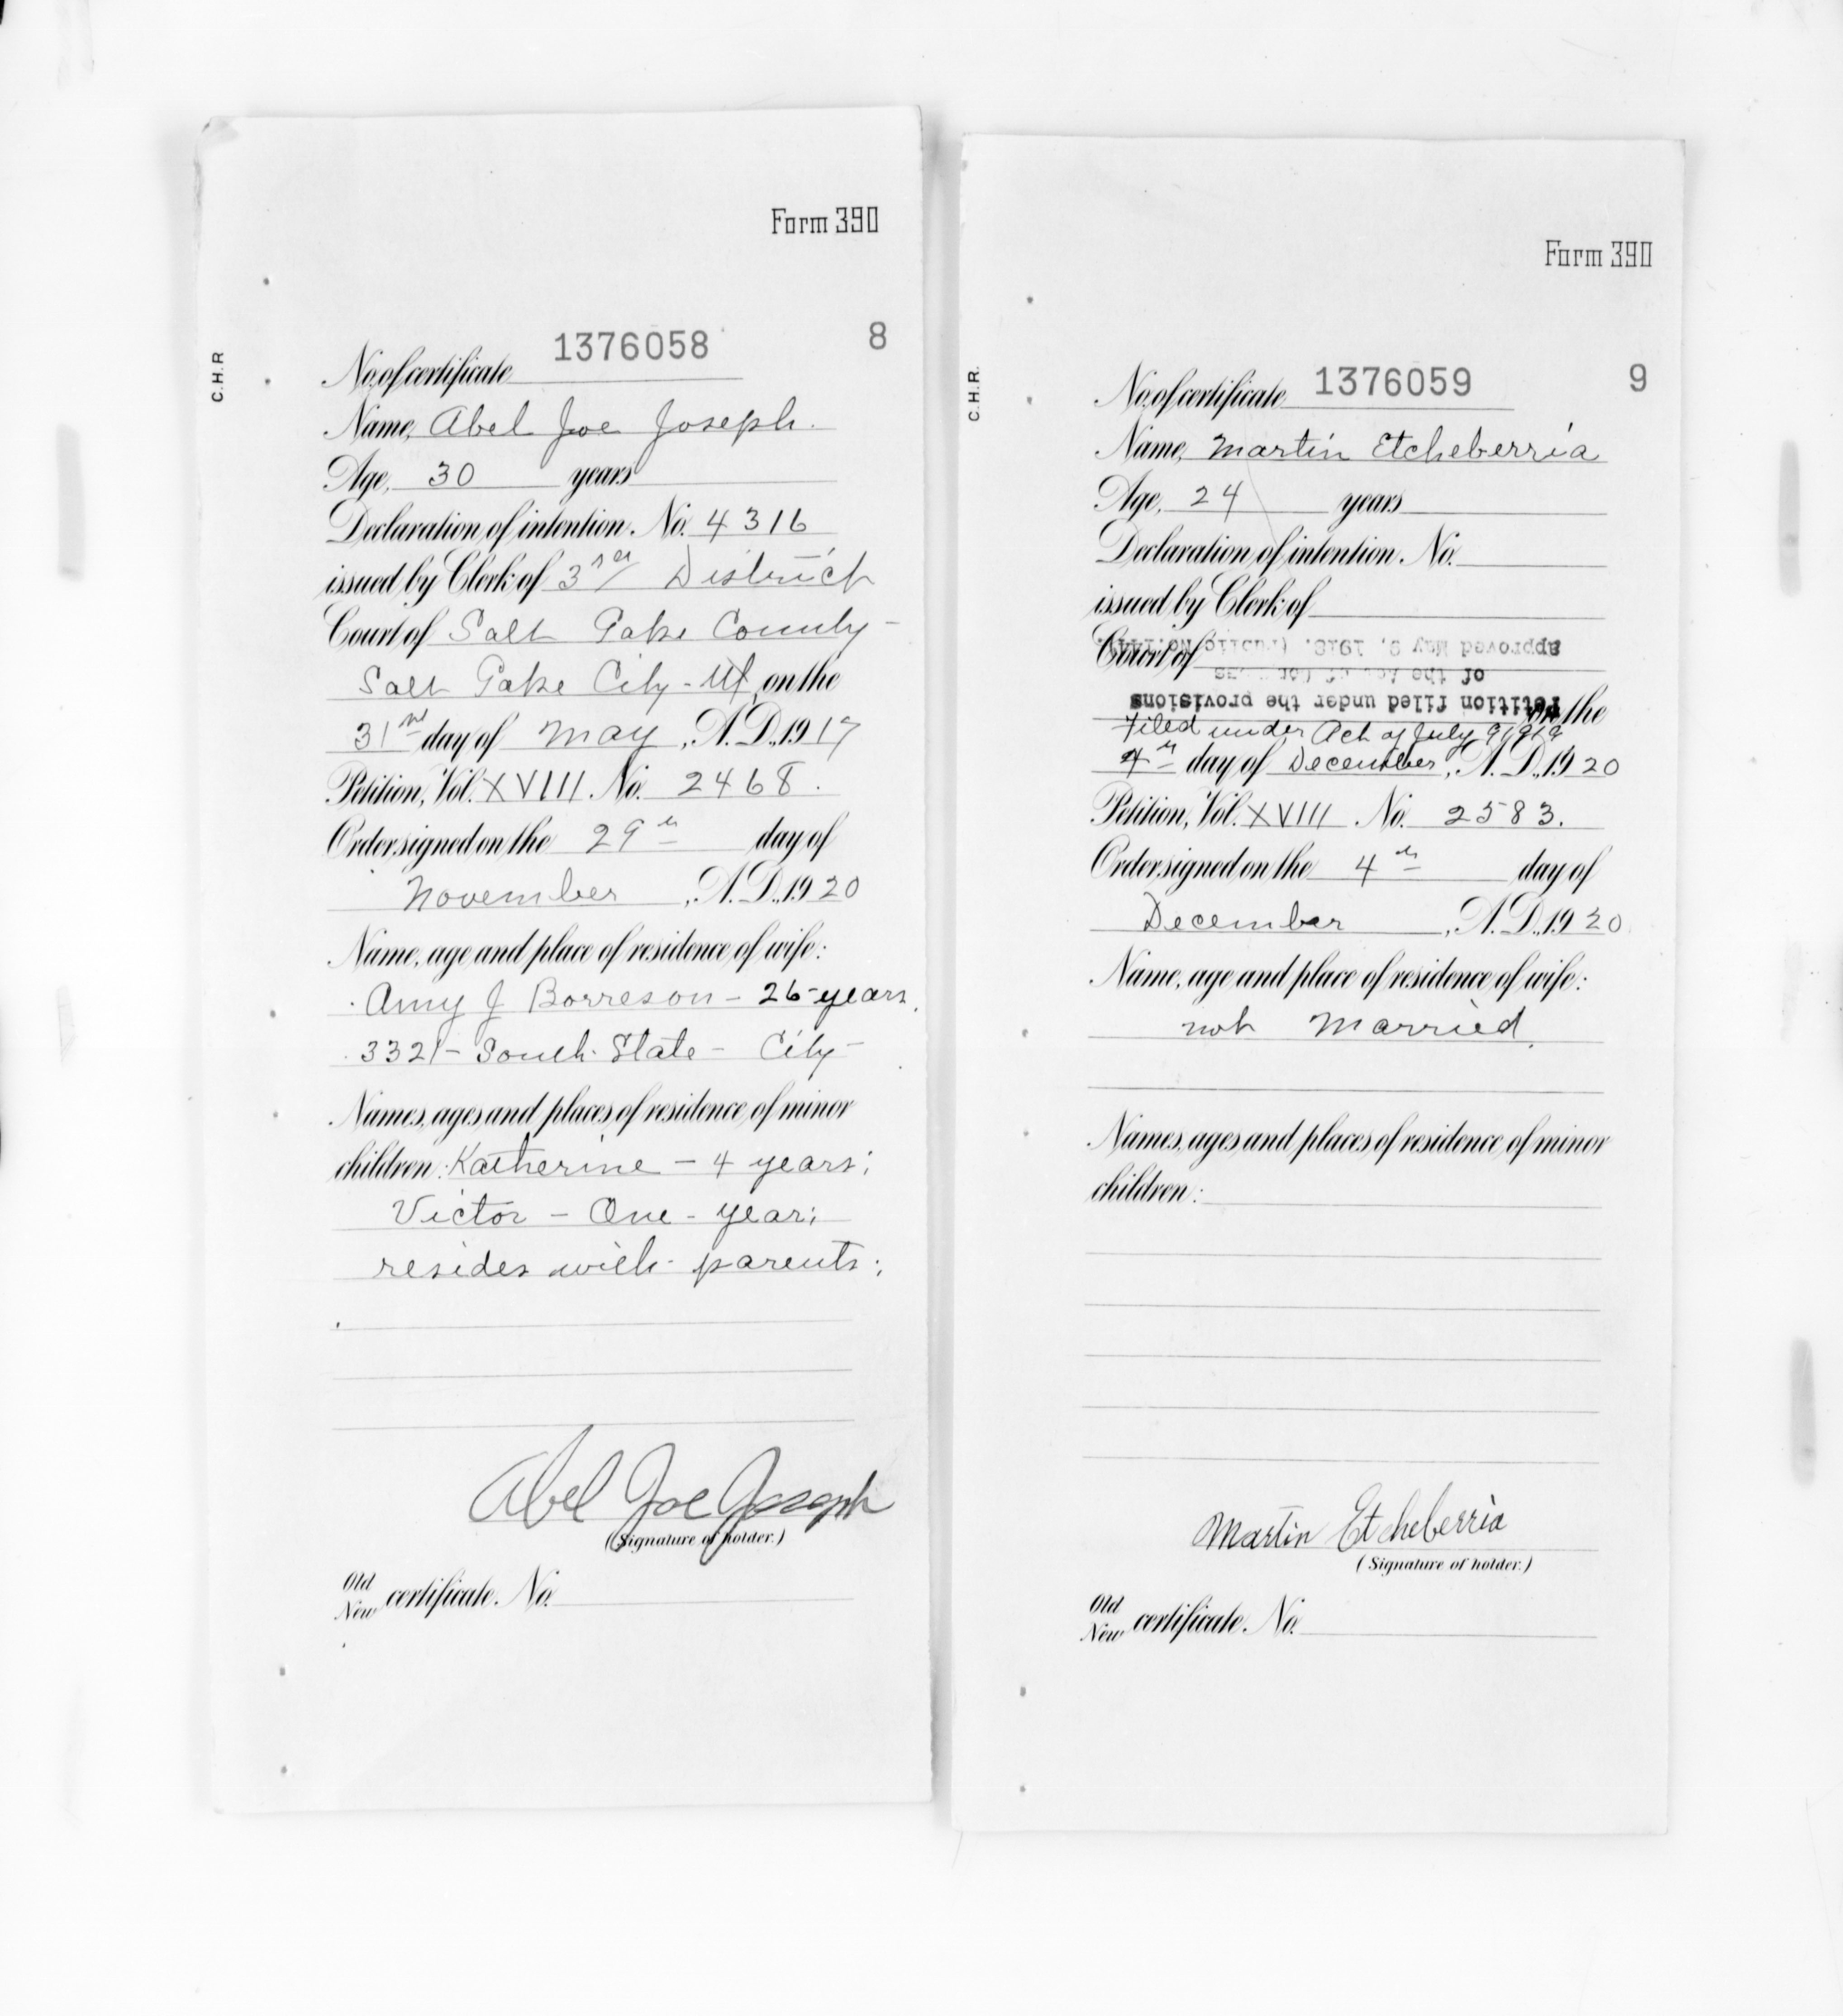 Form 390
C.H.R
No. of certificate 1376058 8
Name, Abel Joe Joseph.
Age, 30 years
Declaration of intention, No. 4316
issued by Clerk of 3rd District
Court of Salt Lake County -
Salt Lake City - Ut, on the
31st day of May, A. D., 1917
Petition, Vol. XVIII. No. 2468.
Order signed on the 29th day of
November, A. D., 1920
Name, age and place of residence of wife:
Amy J Borreson - 26-years.
3321 - South State - City -
Names, ages and places of residence of minor
children: Katherine - 4 years;
Victor - One - year;
resides with parents;
Abel Joe Joseph
(Signature of holder.)
Old
New certificate. No.
Form 390
C.H.R.
No. of certificate 1376059 9
Name, Martin Etcheberria
Age, 24 years
Declaration of intention. No.
issued by Clerk of
Court of
on the
Petition filed under the provisions
of the Act of
approved May 9, 1918. (Public No.
Filed under Act of July 9 1919
4th day of December, A. D., 1920
Petition, Vol. XVIII No. 2583.
Order signed on the 4th day of
December, A. D., 1920
Name, age and place of residence of wife:
not Married.
Names, ages and places of residence of minor
children:
Martin Etcheberria
(Signature of holder.)
Old
New certificate. No.